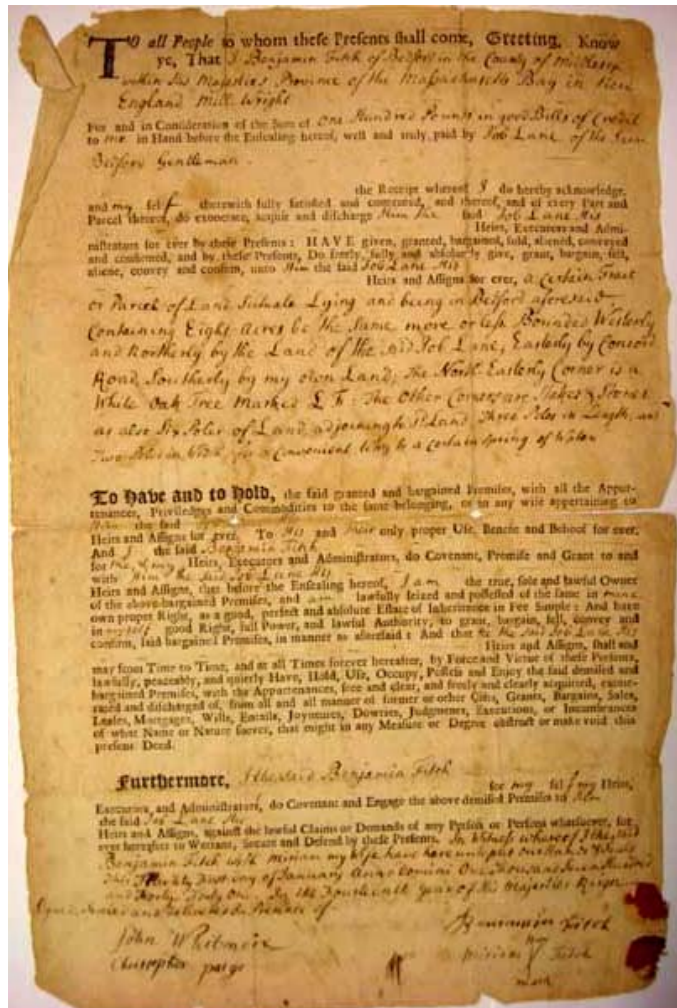 TO all People to whom these Presents shall come, Greeting, Know
ye, That I Benjamin Fitch of Bedford in the County of Middlesex
within his Majesties Province of the Massachusetts Bay in New
England Mill Wright
For and in Consideration of the Sum of One Hundred Pounds in good Bills of Credit
to me in Hand before the Ensealing hereof, well and truly paid by Job Lane of the
Bedford Gentleman
the Receipt whereof I do hereby acknowledge,
and my self therewith fully satisfied and contented, and thereof, and of every Part and
Parcel thereof, do exonerate, acquit and discharge Him the said Job Lane His
Heirs, Executors and Admi-
nistrators for ever by these Presents: HAVE given, granted, bargained, sold, aliened, conveyed
and confirmed, and by these Presents, Do freely, fully and absolutely give, grant, bargain, sell,
aliene, convey and confirm, unto Him the said Job Lane His
Heirs and Assigns for ever, a Certain Tract
or Parcel of Land Situate Lying and being in Bedford aforesaid
Containing Eight Acres be the Same more or less Bounded Westerly
and Northerly by the Land of the said Job Lane, Easterly by Concord
Road, Southerly by my own Land; The North Easterly Corner is a
White Oak Tree Marked L F: The Other Corners are Stakes & Stones
as also Six Poles of Land adjoining to sd Land Three Poles in Length, and
Two Poles in Width, for a Convenient Way to a certain Spring of Water
To Have and to Hold, the said granted and bargained Premises, with all the Appur-
tenances, Priviledges and Commodities to the same belonging, or in any wise appertaining to
Him the said
Heirs and Assigns for ever, To His and Their only proper Use, Benefit and Behoof for ever.
And I the said Benjamin Fitch
for me, & my Heirs, Executors and Administrators, do Covenant, Promise and Grant to and
with Him the Said Job Lane His
Heirs and Assigns, that before the Ensealing hereof, I am the true, sole and lawful Owner
of the above-bargained Premises, and am lawfully seized and possessed of the same in mine
own proper Right, as a good, perfect and absolute Estate of Inheritance in Fee Simple: And have
in myself good Right, full Power, and lawful Authority, to grant, bargain, sell, convey and
confirm, said bargained Premises, in manner as aforesaid: And that he the Said Job Lane His
Heirs and Assigns, shall and
may from Time to Time, and at all Times forever hereafter, by Force and Virtue of these Presents,
lawfully, peaceably, and quietly Have, Hold, Use, Occupy, Possess and Enjoy the said demised and
bargained Premises, with the Appurtenances, free and clear, and freely and clearly acquitted, exone-
rated and discharged of, from all and all manner of former or other Gifts, Grants, Bargains, Sales,
Leases, Mortgages, Wills, Entails, Joyntures, Dowries, Judgments, Executions, or Incumbrances
of what Name or Nature soever, that might in any Measure or Degree obstruct or make void this
present Deed.
Furthermore, I the said Benjamin Fitch
for my self my Heirs,
Executors, and Administrators, do Covenant and Engage the above demised Premises to Him
the said Job Lane His
Heirs and Assigns, against the lawful Claims or Demands of any Person or Persons whatsoever, for
ever hereafter to Warrant, Secure and Defend by these Presents. In Witness whereof I the said
Benjamin Fitch with Miriam my Wife have hereunto put our Hands & Seals
This Twenty First day of January Anno Domini One Thousand Seven Hundred
and Forty Forty One In the Fourteenth Year of His Majesties Reign
Signed Sealed and Delivered In Presence of
John Whitmore
Christopher paige
Benjamin Fitch
Miriam Fitch
mark